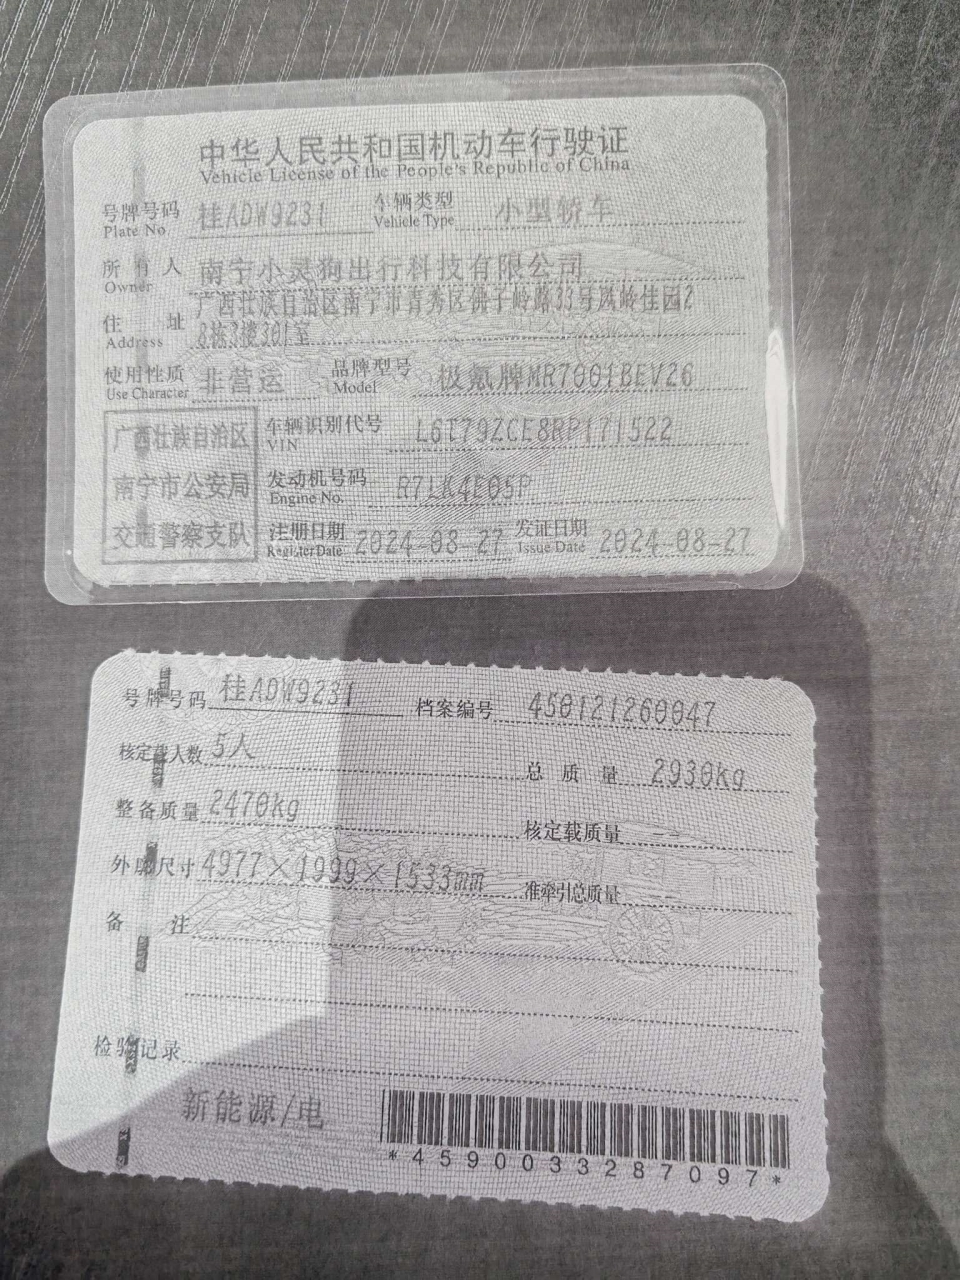 中华人民共和国机动车行驶证
Vehicle License of the People's Republic of China
号牌号码 桂ADW9231 车辆类型 小型轿车
Plate No. Vehicle Type
所有人 南宁小灵狗出行科技有限公司
Owner
住址 广西壮族自治区南宁市青秀区佛子岭路33号凤岭佳园2
Address 8栋3楼301室
使用性质 非营运 品牌型号 极氪牌MR7001BEV26
Use Character Model
广西壮族自治区 车辆识别代号 L6T79ZCE8RP171522
VIN
南宁市公安局 发动机号码 R7LK4E05P
Engine No.
交通警察支队 注册日期 2024-08-27 发证日期 2024-08-27
Register Date Issue Date
号牌号码 桂ADW9231 档案编号 450121260047
核定载人数 5人 总质量 2930kg
整备质量 2470kg 核定载质量 --
外廓尺寸 4977×1999×1533mm 准牵引总质量 --
备注
检验记录
新能源/电
*4590033287097*